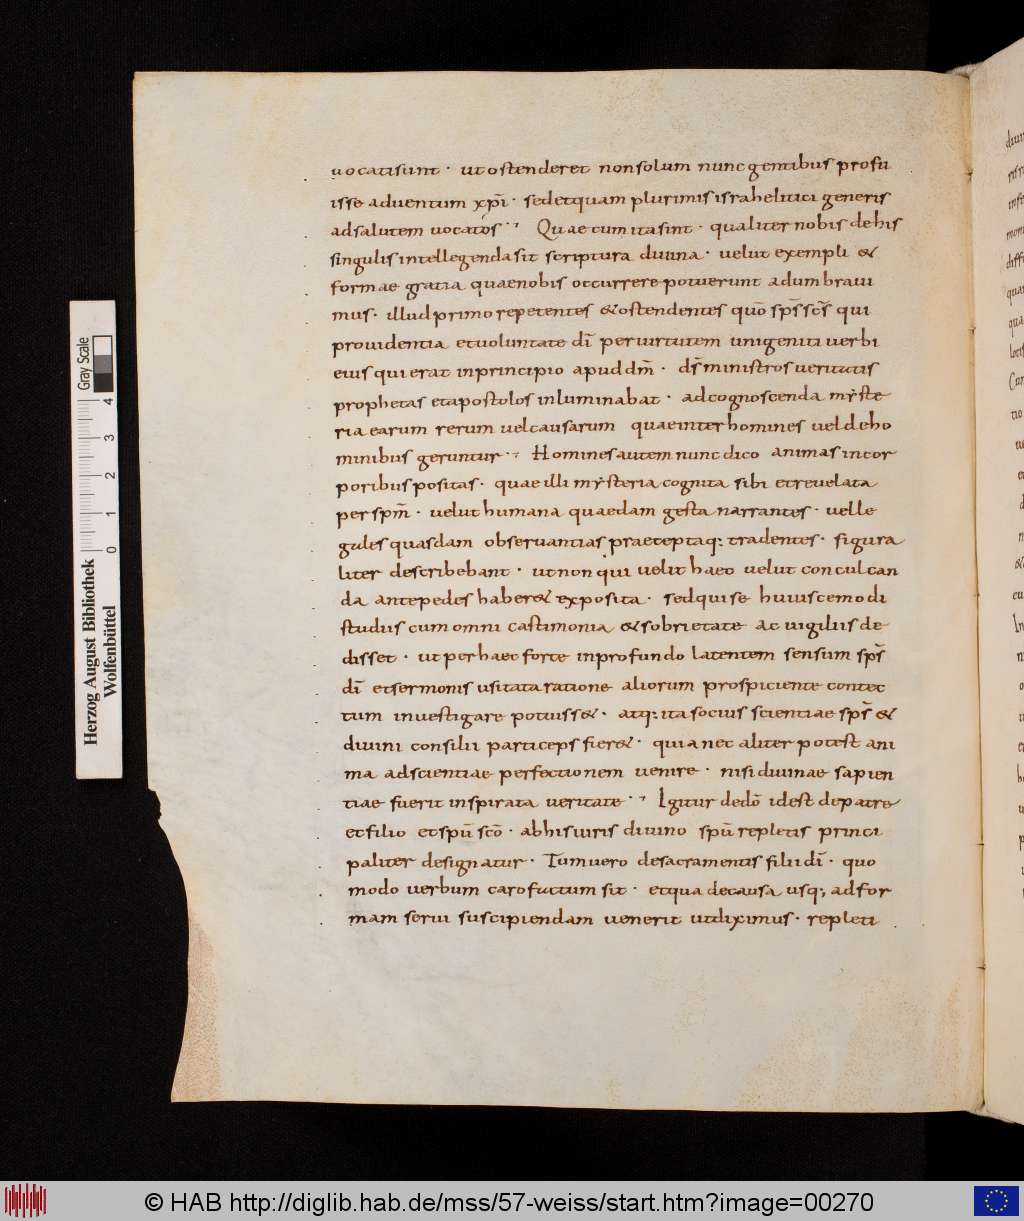 uocatisunt · ut ostenderet nonsolum nunc gentibus profu
isse aduentum xp̄i · sedetquam plurimis israhelitici generis
adsalutem uocatos · Quae cum itasint · qualiter nobis dehis
singulis intellegenda sit scriptura diuina · uelut exempli &
formae gratia quaenobis occurrere potuerunt adumbraui
mus · illud primo repetentes &ostendentes quō sp̄s sc̄s qui
prouidentia etuoluntate dī per uirtutem unigeniti uerbi
eius qui erat inprincipio apud dm̄ · dī ministros ueritatis
prophetas etapostolos inluminabat · adcognoscenda mẏste
ria earum rerum uelcausarum quaeinter homines uel deho
minibus geruntur · Homines autem nunc dico animas incor
poribus positas · quae illi mẏsteria cognita sibi etreuelata
per spm̄ · uelut humana quaedam gesta narrantes · uelle
gales quasdam obseruantias praeceptaq; tradentes · figura
liter describebant · ut non qui uelit haec uelut conculcan
da antepedes haber& exposita · sed qui se huiuscemodi
studiis cum omni castimonia &sobrietate ac uigiliis de
disset · ut per haec forte inprofundo latentem sensum sp̄s
dī etsermonis usitata ratione aliorum prospiciente contec
tum inuestigare potuiss& · atq; ita socius scientiae sp̄s &
diuini consilii particeps fier& · quia nec aliter potest ani
ma adscientiae perfectionem uenire · nisi diuinae sapien
tiae fuerit inspirata ueritate · Igitur dedō idest depatre
etfilio etspū scō · abhis uiris diuino spū repletis princi
paliter designatur · Tum uero desacramentis filii dī · quo
modo uerbum caro factum sit · etqua decausa usq; adfor
mam serui suscipiendam uenerit utdiximus · repleti
Herzog August Bibliothek
Wolfenbüttel
Gray Scale
0 1 2 3 4
© HAB http://diglib.hab.de/mss/57-weiss/start.htm?image=00270